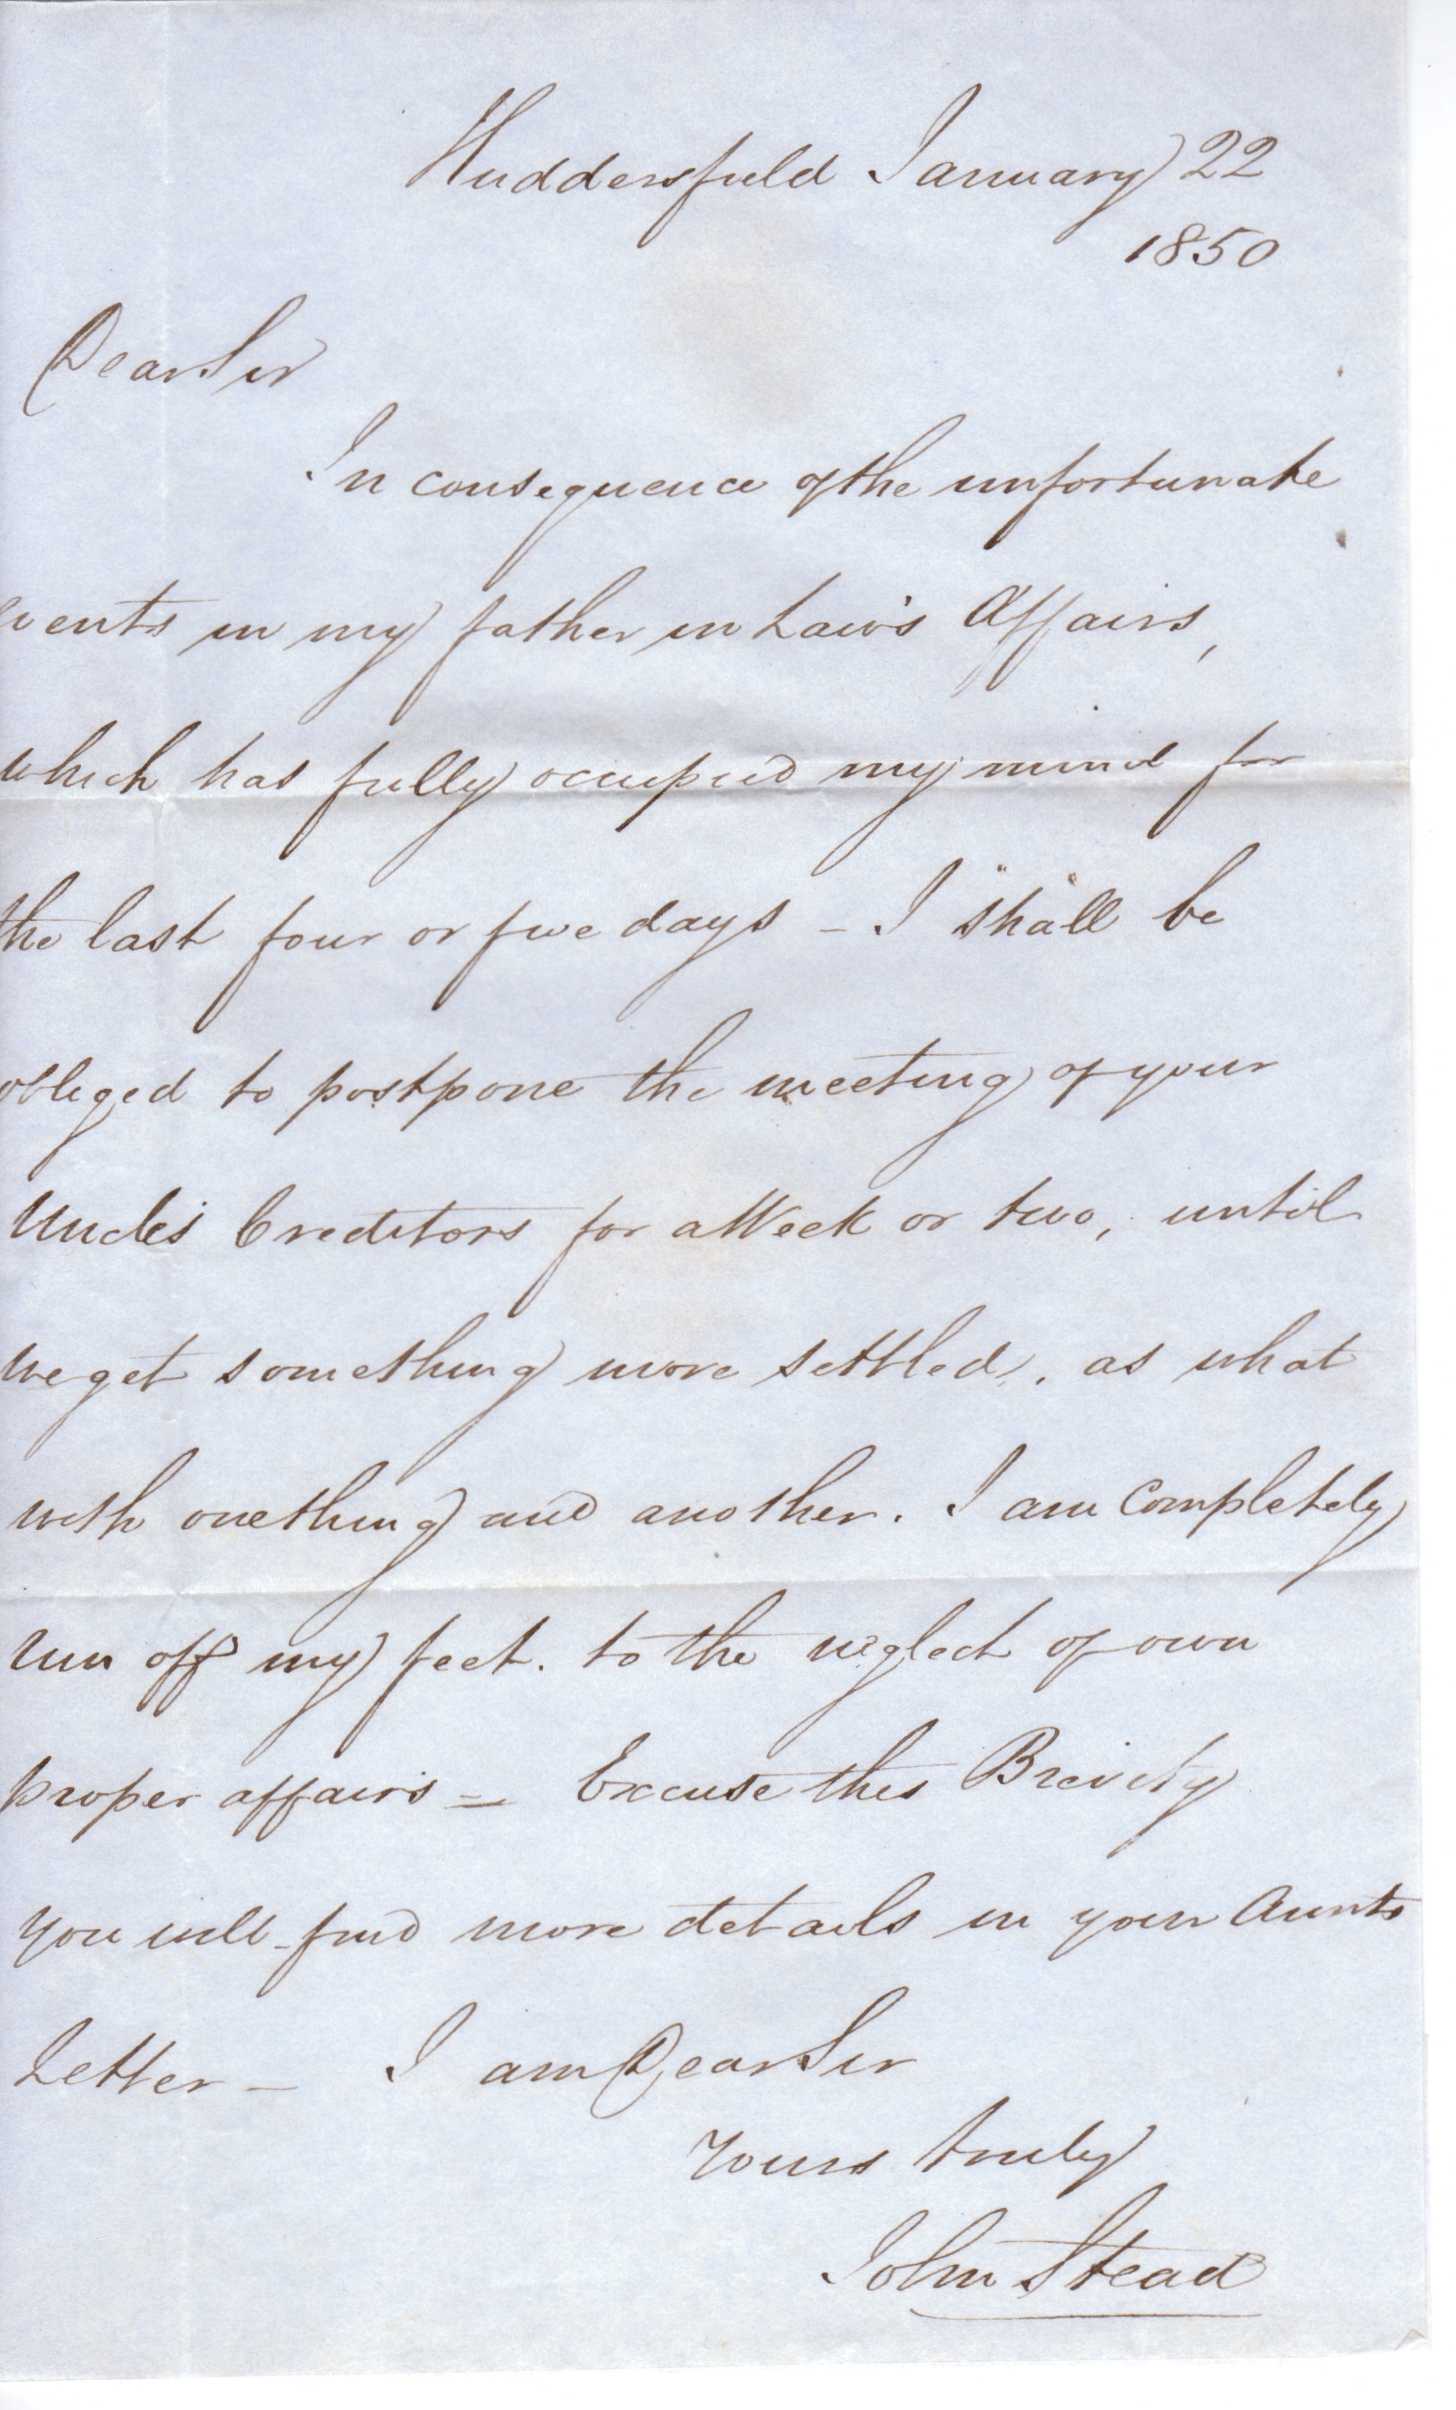 Huddersfield January 22
1850
Dear Sir
In consequence of the unfortunate
events in my father in Law's Affairs,
which has fully occupied my mind for
the last four or five days - I shall be
obliged to postpone the meeting of your
Uncle's Creditors for a Week or two, until
we get something more settled, as what
with one thing and another. I am Completely
run off my feet. to the neglect of own
proper affairs = Excuse this Brevity
you will find more details in your Aunts
Letter - I am Dear Sir
Yours truly
John Stead